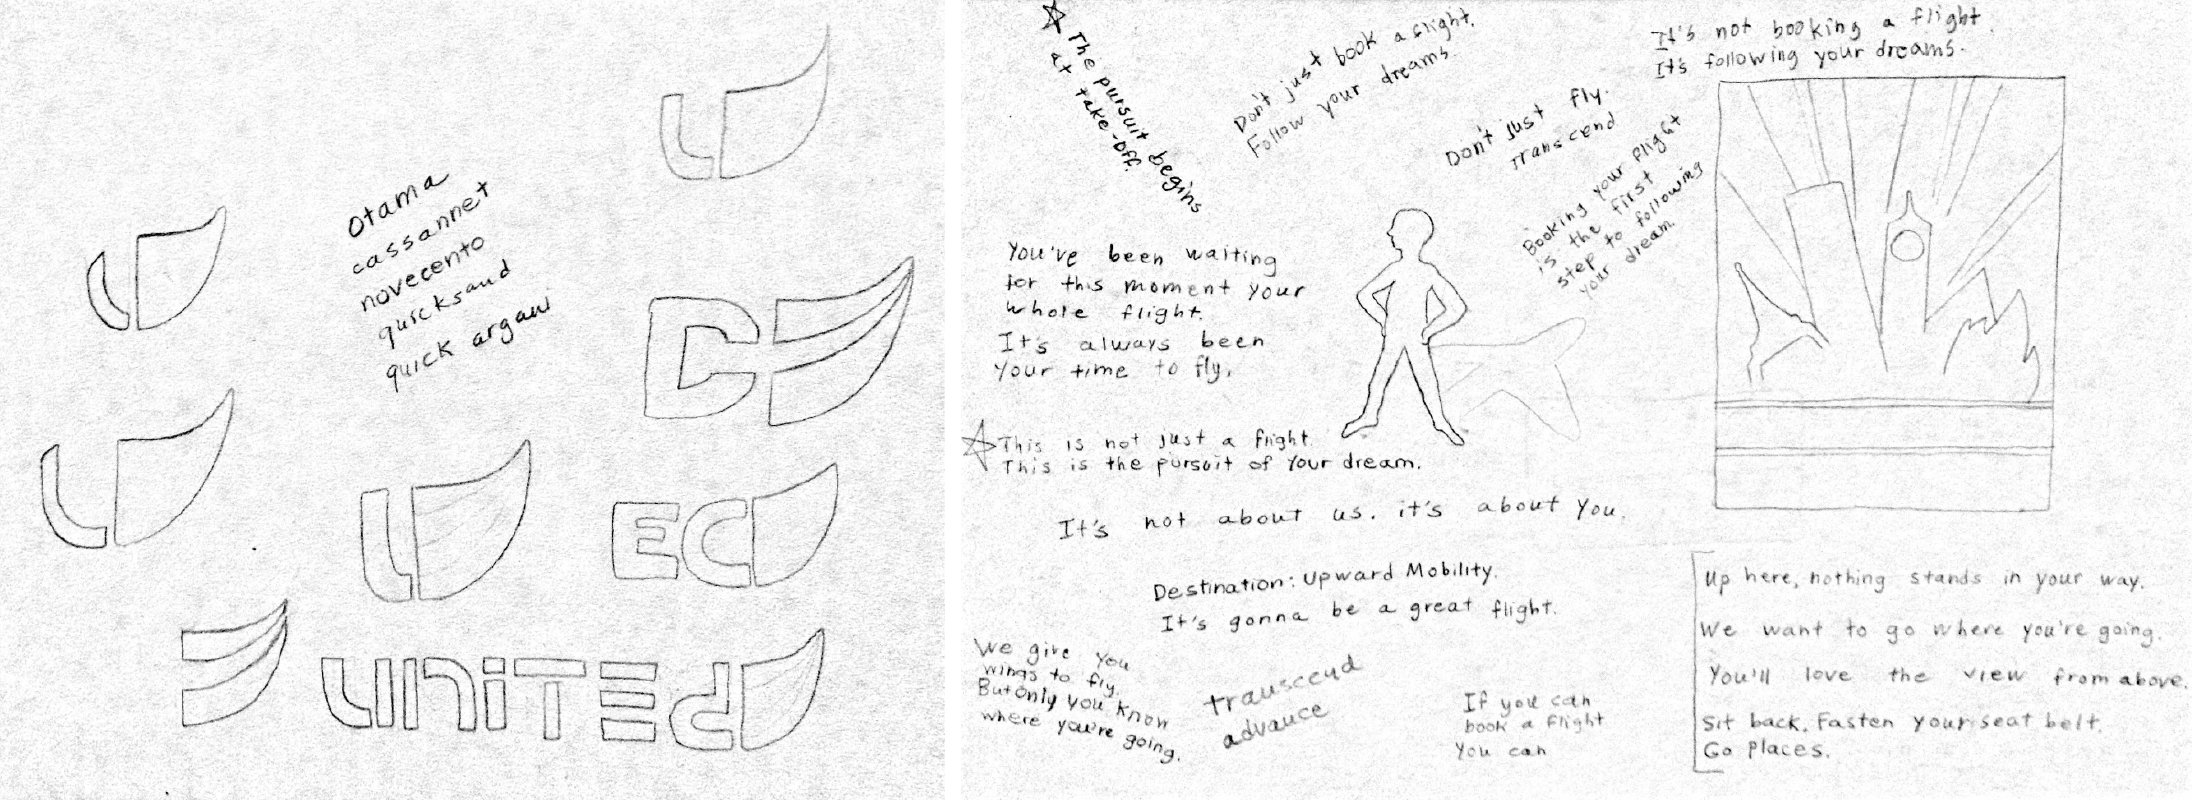 Otama
cassannet
novecento
quicksand
quick argani
UNITED
EC
The pursuit begins
at take-off.
Don't just book a flight.
Follow your dreams.
It's not booking a flight.
It's following your dreams.
Don't just fly.
Transcend
Booking your flight
is the first
step to following
your dream.
You've been waiting
for this moment your
whole flight.
It's always been
your time to fly.
This is not just a flight.
This is the pursuit of your dream.
It's not about us. it's about you.
Destination: Upward Mobility.
It's gonna be a great flight.
We give you
wings to fly.
But only you know
where you're going.
transcend
advance
If you can
book a flight
You can
Up here, nothing stands in your way.
We want to go where you're going.
You'll love the view from above.
Sit back. Fasten your seat belt.
Go places.